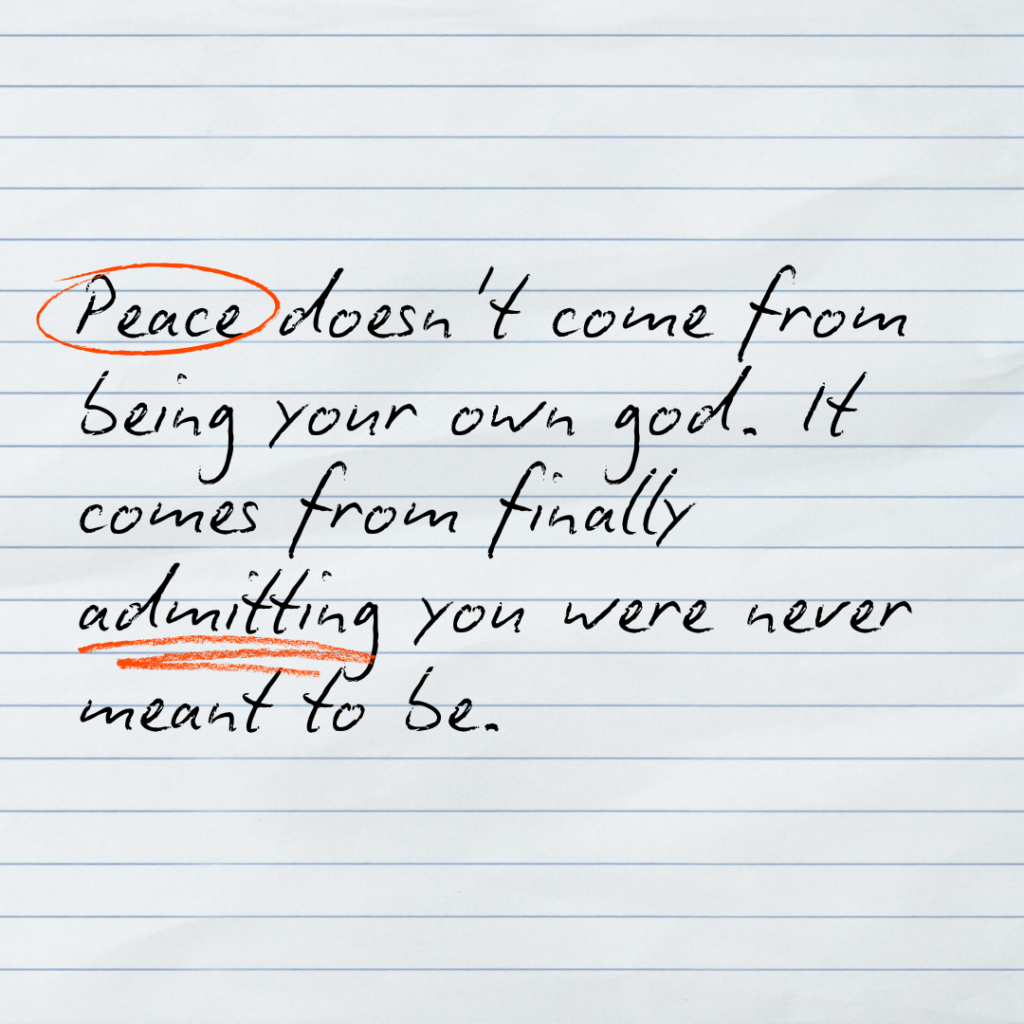 Peace doesn't come from
being your own god. It
comes from finally
admitting you were never
meant to be.